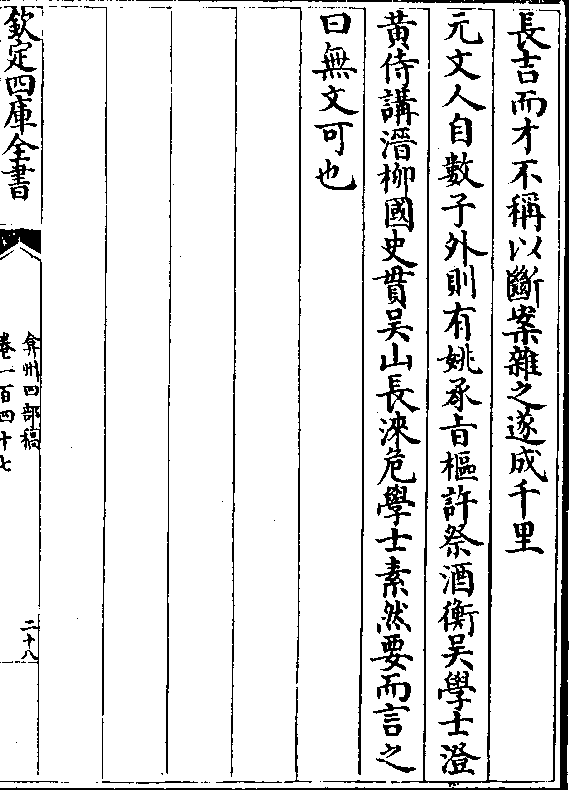 長吉而才不稱以斷案雜之遂成千里
元文人自數子外則有姚承㫖樞許祭酒衡吳學士澄
黄侍講溍柳國史貫吳山長洓危學士素然要而言之
曰無文可也
欽定四庫全書
弇州四部稿
卷一百四十七
二十八